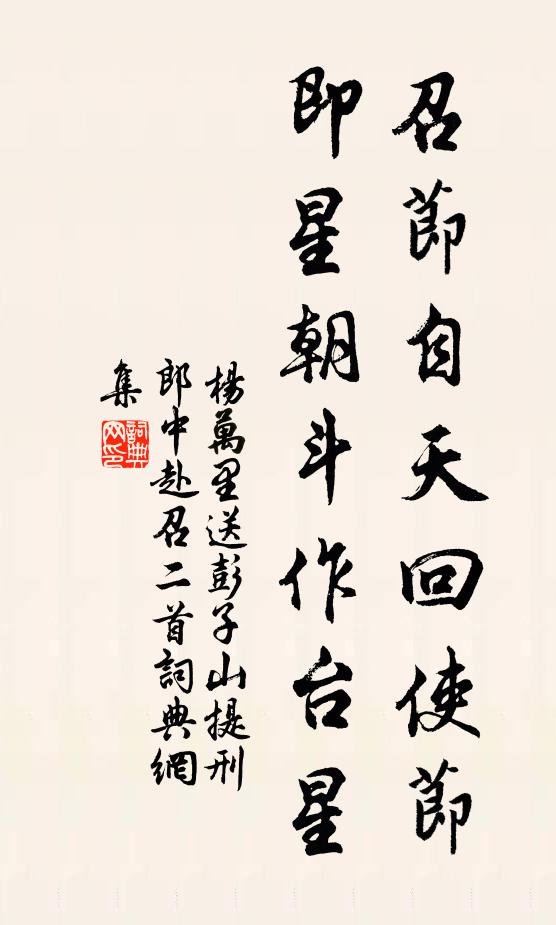 召莭自天回使莭
即星朝斗作台星
楊萬里送彭子山提刑
郎中赴召二首詞典網
集
詞典
网印